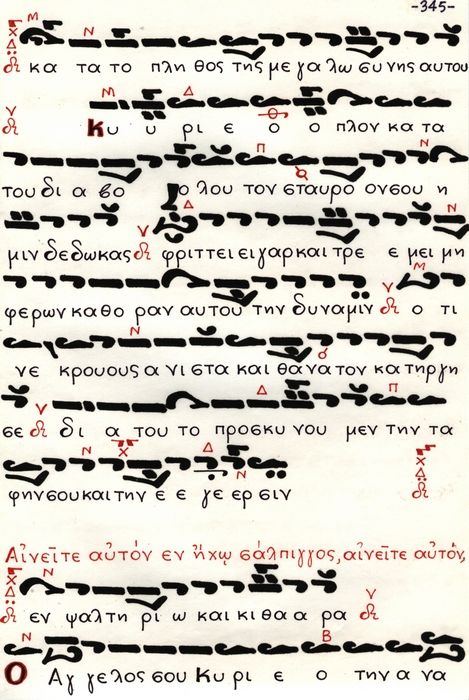 -345-
κα τα το πλη θος της με γα λω συ νης αυτου
Κυ υ ρι ε ο ο πλον κα τα
του δι α βο ο λου τον σταυρο ον σου η
μιν δεδωκας φριττει ει γαρ και τρε ε μει μη
φερων κα θο ραν αυτου την δυναμιν ο τι
νε κρουους α νι στα και θανα τον κα τηργη
σε δι α του το προσκυνου μεν την τα
φην σου και την ε ε γε ερ σιν
Αἰνεῖτε αὐτόν εν ἤχῳ σάλπιγγος, αἰνεῖτε αὐτόν,
εν ψαλτη ρι ω και κι θα α ρα
Ο Αγ γελος σου Κυ ρι ε ο την α να